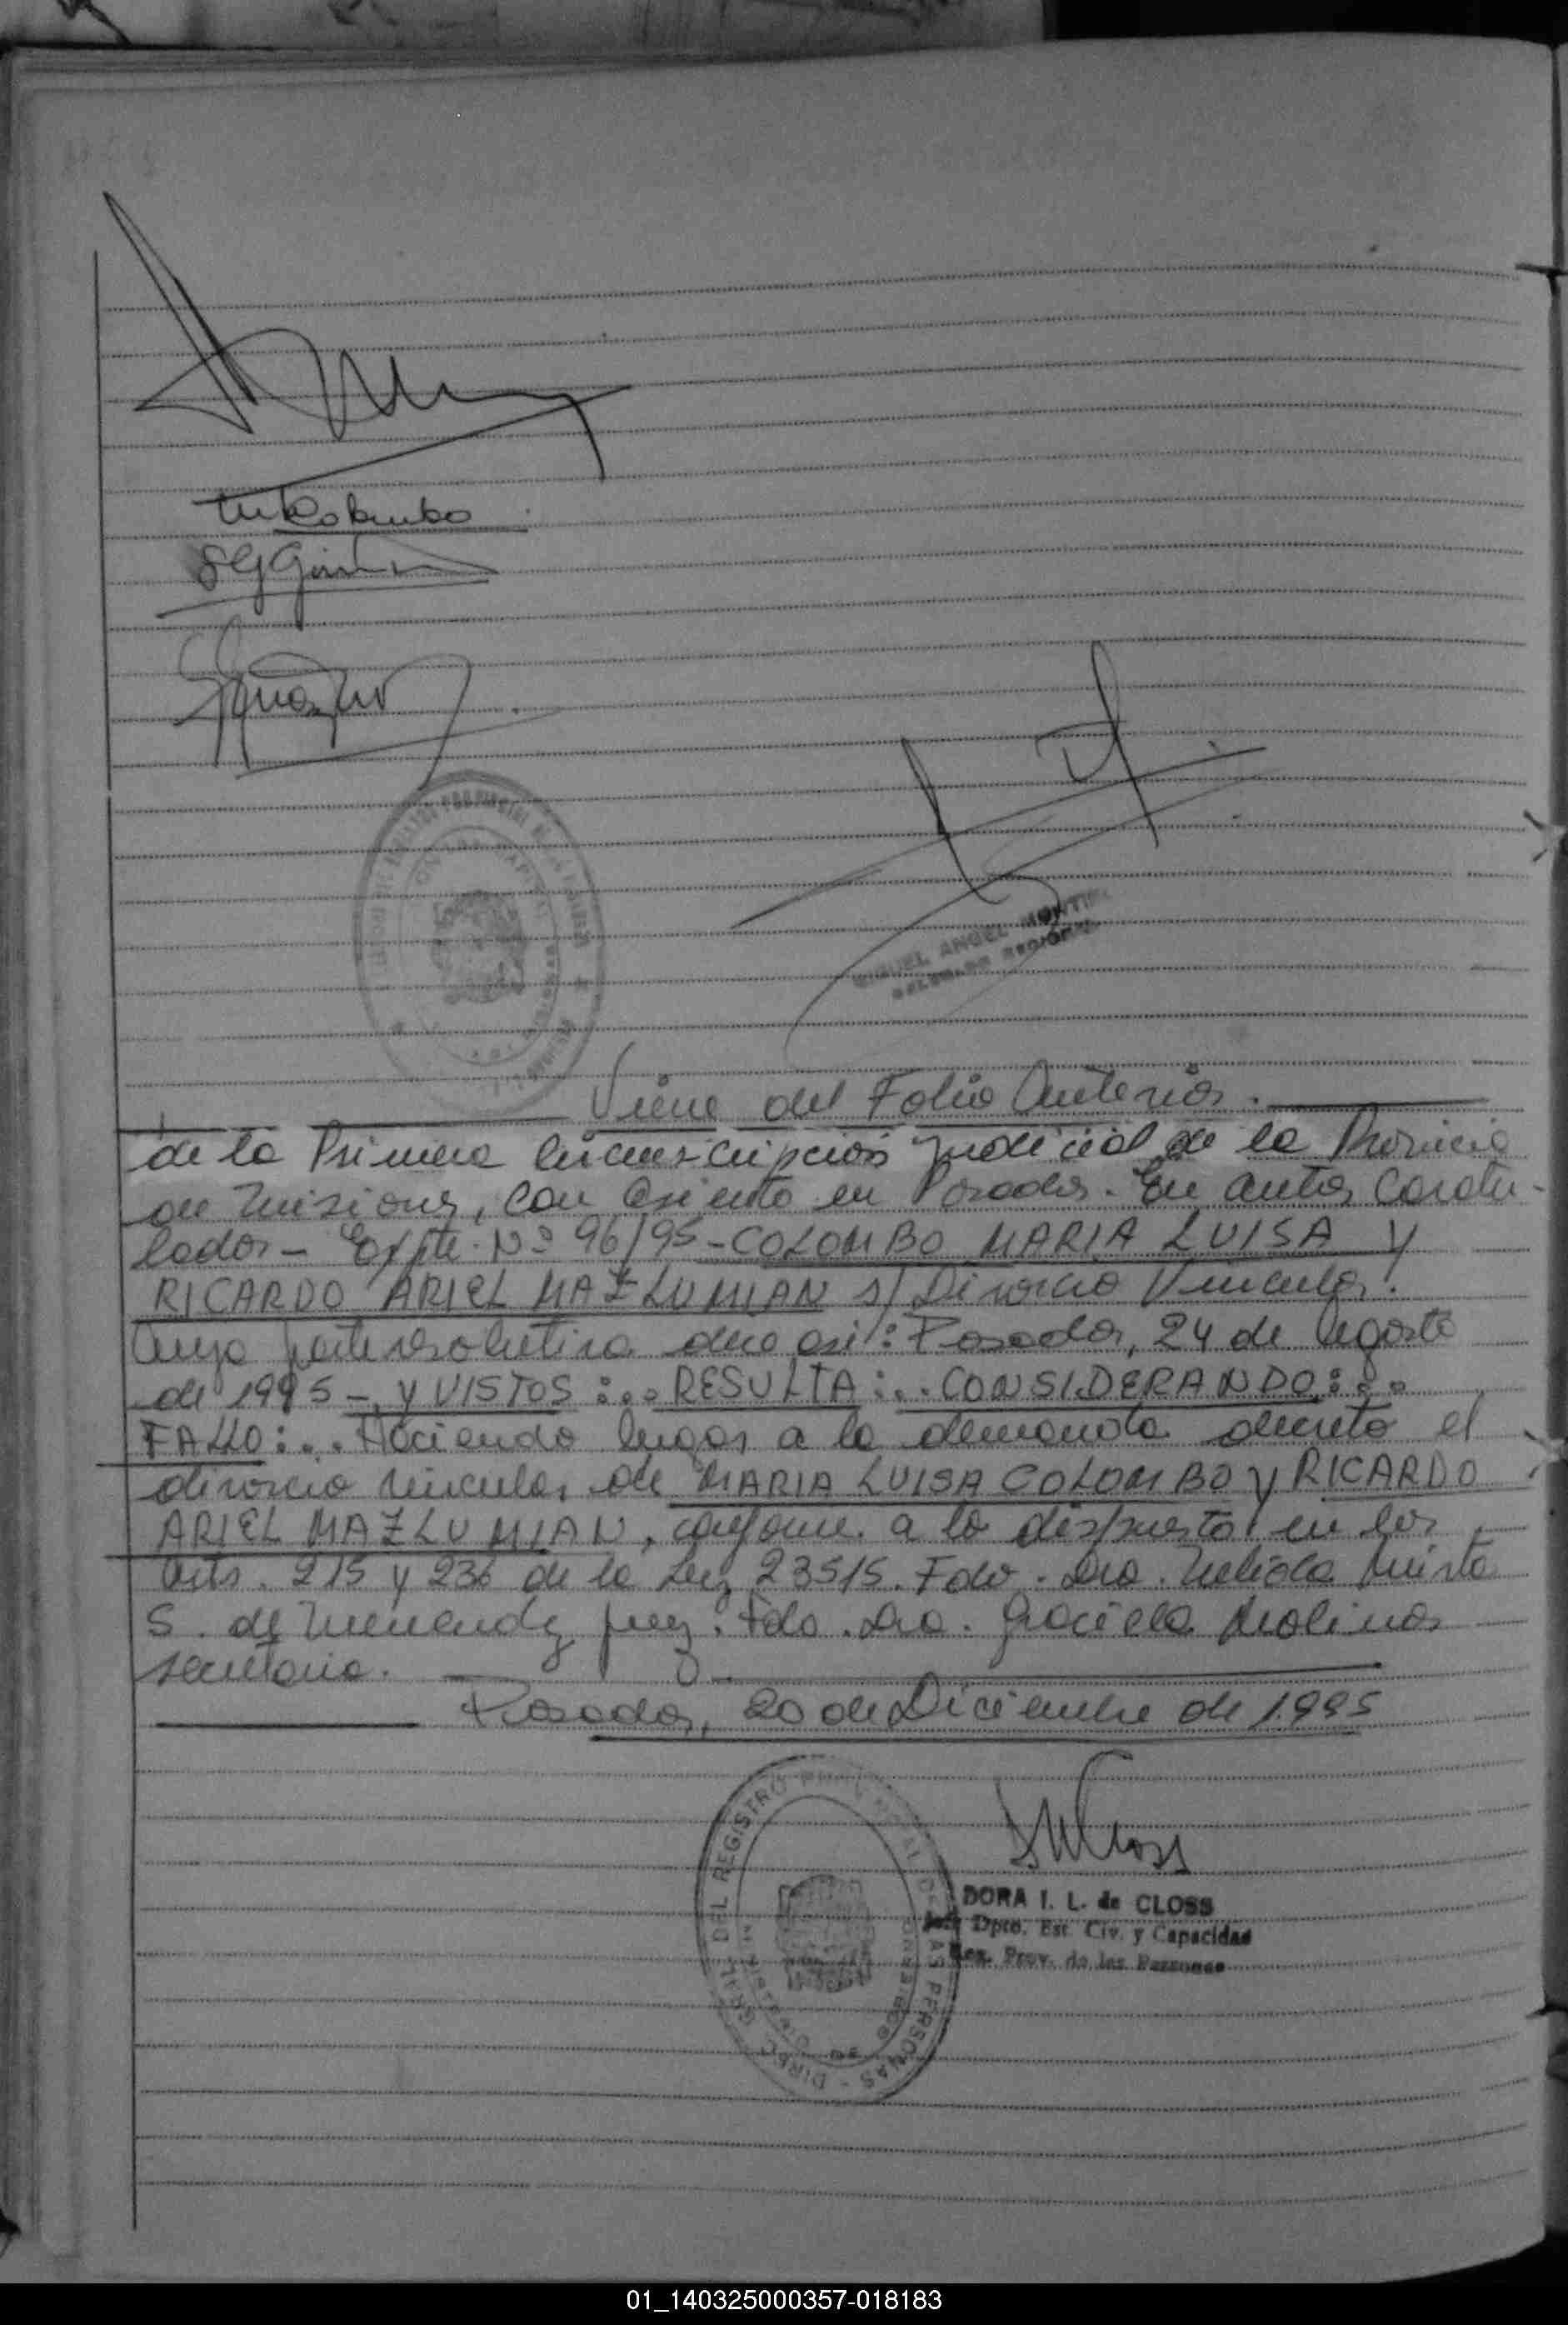 MIGUEL ANGEL MONTIEL
Viene del Folio Anterior.
de la Primera Circunscripcion Judicial de la Provincia
de Misiones, con asiento en Posadas. En autos caratu-
lados - Expte. Nº 96/95 - COLOMBO MARIA LUISA Y
RICARDO ARIEL MAZLUMIAN s/ Divorcio Vincular.
Cuya parte resolutiva dice asi: Posadas, 24 de Agosto
de 1995 - Y VISTOS:... RESULTA:... CONSIDERANDO:...
FALLO:... Haciendo lugar a la demanda decreto el
divorcio vincular de MARIA LUISA COLOMBO y RICARDO
ARIEL MAZLUMIAN, conforme a lo dispuesto en los
Arts. 215 y 236 de la Ley 23515. Fdo. Dra.
S. de Menendez Juez. Fdo. Dra. Graciela Molinas
secretaria.
Posadas, 20 de Diciembre de 1995
DEL REGISTRO DE LAS PERSONAS - DIREC. GRAL.
DORA I. L. de CLOSS
Jefe Dpto. Est. Civ. y Capacidad
Reg. Prov. de las Personas
01_140325000357-018183